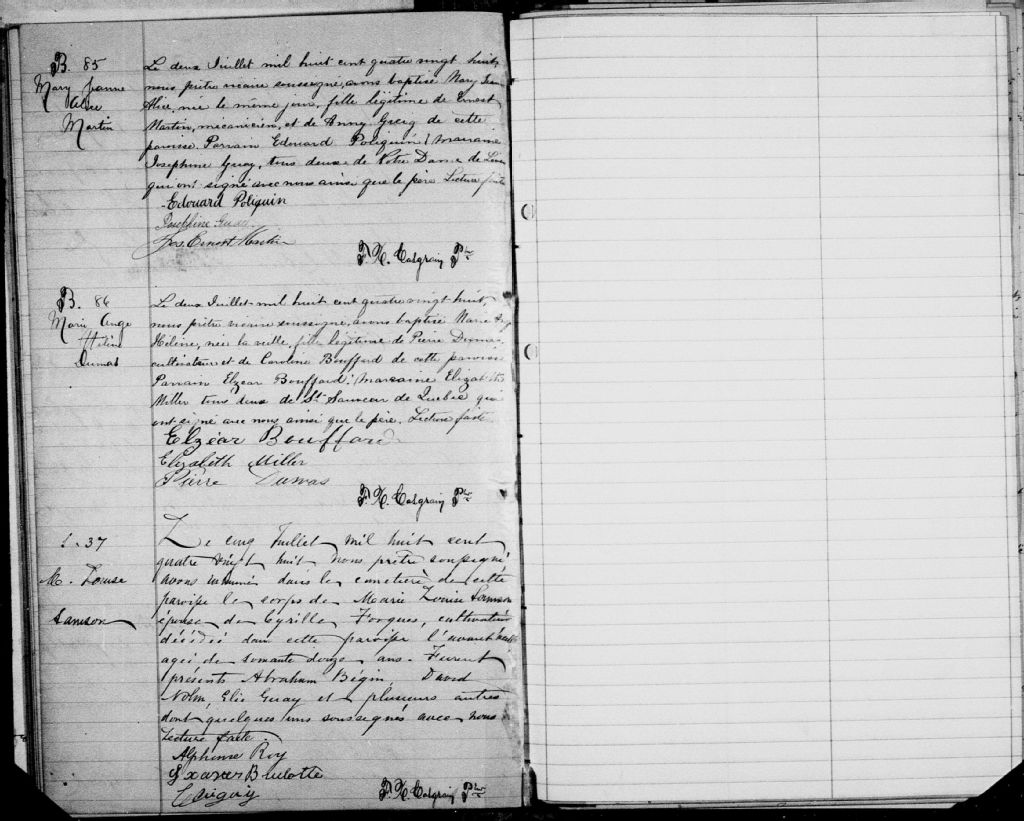 B. 85
Mary Jeanne
Alice
Martin
Le deux Juillet mil huit cent quatre vingt huit,
nous prêtre vicaire soussigné, avons baptisé Mary Jean
Alice, née le même jour, fille légitime de Ernest
Martin, mécanicien, et de Anny Greig de cette
paroisse. Parrain Edouard Poliquin; Marraine
Josephine Guay, tous deux de Notre Dame de Lévis
qui ont signé avec nous ainsi que le père. Lecture faite
Edouard Poliquin
Joséphine Guay
Jos. Ernest Martin
F. X. Casgrain Ptre
B. 86
Marie Ange
Hélène
Dumas
Le deux Juillet mil huit cent quatre vingt huit,
nous prêtre vicaire soussigné, avons baptisé Marie Ange
Hélène, née la veille, fille légitime de Pierre Dumas,
cultivateur et de Caroline Bouffard de cette paroisse
Parrain Elzear Bouffard; Marraine Elizabeth
Miller tous deux de St Sauveur de Quebec qui
ont signé avec nous ainsi que le père. Lecture faite
Elzéar Bouffard
Elizabeth Miller
Pierre Dumas
F. X. Casgrain Ptre
S. 37
M. Louise
Samson
Le cinq Juillet mil huit cent
quatre vingt huit Nous prêtre soussigné
avons inhumé dans le cimetière de cette
paroisse le corps de Marie Louise Samson
épouse de Cyrille Forgues, cultivateur
décédée dans cette paroisse l'avant veille
agée de soixante douze ans. Furent
présents Abraham Bégin, David
Nolin, Elie Guay et plusieurs autres
dont quelques uns soussignés avec nous
Lecture faite.
Alphonse Roy
F. X. Casgrain Ptre